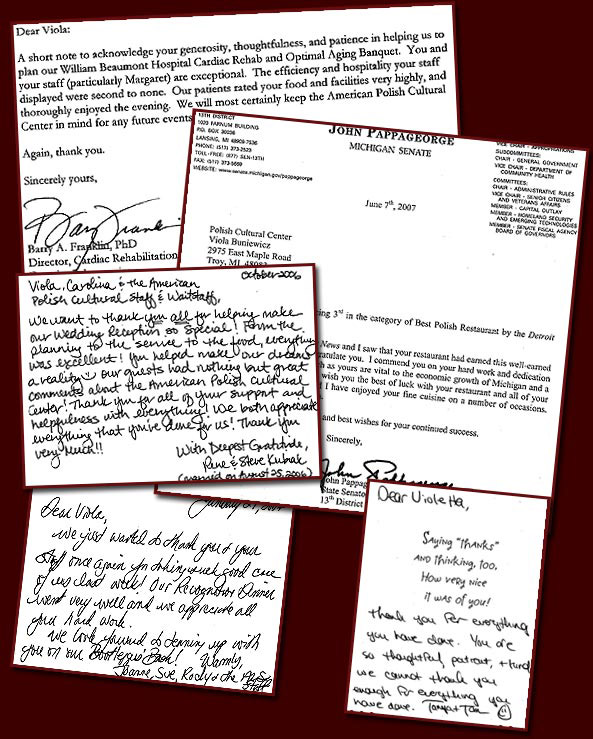 Dear Viola:
A short note to acknowledge your generosity, thoughtfulness, and patience in helping us to
plan our William Beaumont Hospital Cardiac Rehab and Optimal Aging Banquet. You and
your staff (particularly Margaret) are exceptional. The efficiency and hospitality your staff
displayed were second to none. Our patients rated your food and facilities very highly, and
thoroughly enjoyed the evening. We will most certainly keep the American Polish Cultural
Center in mind for any future events
Again, thank you.
Sincerely yours,
Barry Franklin
Barry A. Franklin, PhD
Director, Cardiac Rehabilitation
13TH DISTRICT
1020 FARNUM BUILDING
P.O. BOX 30036
LANSING, MI 48909-7536
PHONE: (517) 373-2523
TOLL-FREE: (877) SEN-13TH
FAX: (517) 373-5669
WEBSITE: www.senate.michigan.gov/pappageorge
JOHN PAPPAGEORGE
MICHIGAN SENATE
VICE CHAIR - APPROPRIATIONS
SUBCOMMITTEES:
CHAIR - GENERAL GOVERNMENT
VICE CHAIR - DEPARTMENT OF
COMMUNITY HEALTH
COMMITTEES:
CHAIR - ADMINISTRATIVE RULES
VICE CHAIR - SENIOR CITIZENS
AND VETERANS AFFAIRS
MEMBER - CAPITAL OUTLAY
MEMBER - HOMELAND SECURITY
AND EMERGING TECHNOLOGIES
MEMBER - SENATE FISCAL AGENCY
BOARD OF GOVERNORS
June 7th, 2007
Polish Cultural Center
Viola Buniewicz
2975 East Maple Road
Troy, MI 48083
ing 3rd in the category of Best Polish Restaurant by the Detroit
News and I saw that your restaurant had earned this well-earned
ratulate you. I commend you on your hard work and dedication
h as yours are vital to the economic growth of Michigan and a
wish you the best of luck with your restaurant and all of your
I have enjoyed your fine cuisine on a number of occasions.
and best wishes for your continued success.
Sincerely,
John Pappag
State Senato
13th District
October 2006
Viola, Carolina & the American
Polish Cultural Staff & Waitstaff,
We want to thank you all for helping make
our Wedding Reception so special! From the
planning to the service to the food, everything
was excellent! You helped make our dreams
a reality :) Our guests had nothing but great
comments about the American Polish Cultural
Center! Thank you for all of your support and
helpfulness with everything! We both appreciate
everything that you've done for us! Thank you
very much!!
With Deepest Gratitude,
& Steve Kubiak
(married on August 25, 2006)
January
Dear Viola,
We just wanted to thank you & your
staff once again for taking such good care
of us last week! Our Recognition Dinner
went very well and we appreciate all
your hard work.
We look forward to teaming up with
you on our Bash! Warmly,
Joanne, Sue, & the
Staff
Dear Violetta,
Saying "Thanks"
and thinking, too,
How very nice
it was of you!
Thank you for everything
you have done. You are
so thoughtful, patient, + kind
we cannot thank you
enough for everything you
have done. Tanya + Tom